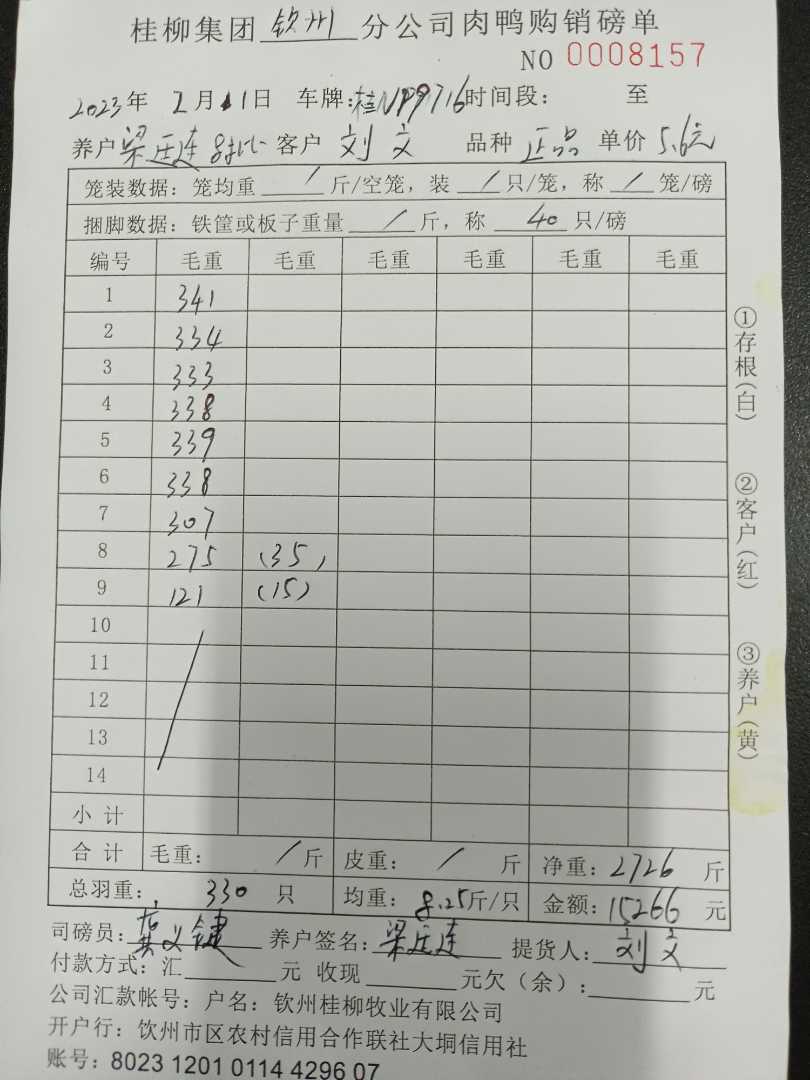 桂柳集团 钦州 分公司肉鸭购销磅单
NO 0008157
2023年 2月 11日 车牌:桂NP9716 时间段: 至
养户 梁廷连 8批 客户 刘文 品种 正品 单价 5.6元
笼装数据: 笼均重 / 斤/空笼, 装 / 只/笼, 称 / 笼/磅
捆脚数据: 铁筐或板子重量 / 斤, 称 40 只/磅
编号 毛重 毛重 毛重 毛重 毛重 毛重
1 341
2 334
3 333
4 338
5 339
6 338
7 307
8 275 (35)
9 121 (15)
10
11
12
13
14
小计
合计 毛重: / 斤 皮重: / 斤 净重: 2726 斤
总羽重: 330 只 均重: 8.25斤/只 金额: 15266 元
司磅员: 黄义键 养户签名: 梁廷连 提货人: 刘文
付款方式: 汇 元 收现 元欠(余): 元
公司汇款帐号: 户名: 钦州桂柳牧业有限公司
开户行: 钦州市区农村信用合作联社大垌信用社
账号: 8023 1201 0114 4296 07
①存根(白)
②客户(红)
③养户(黄)